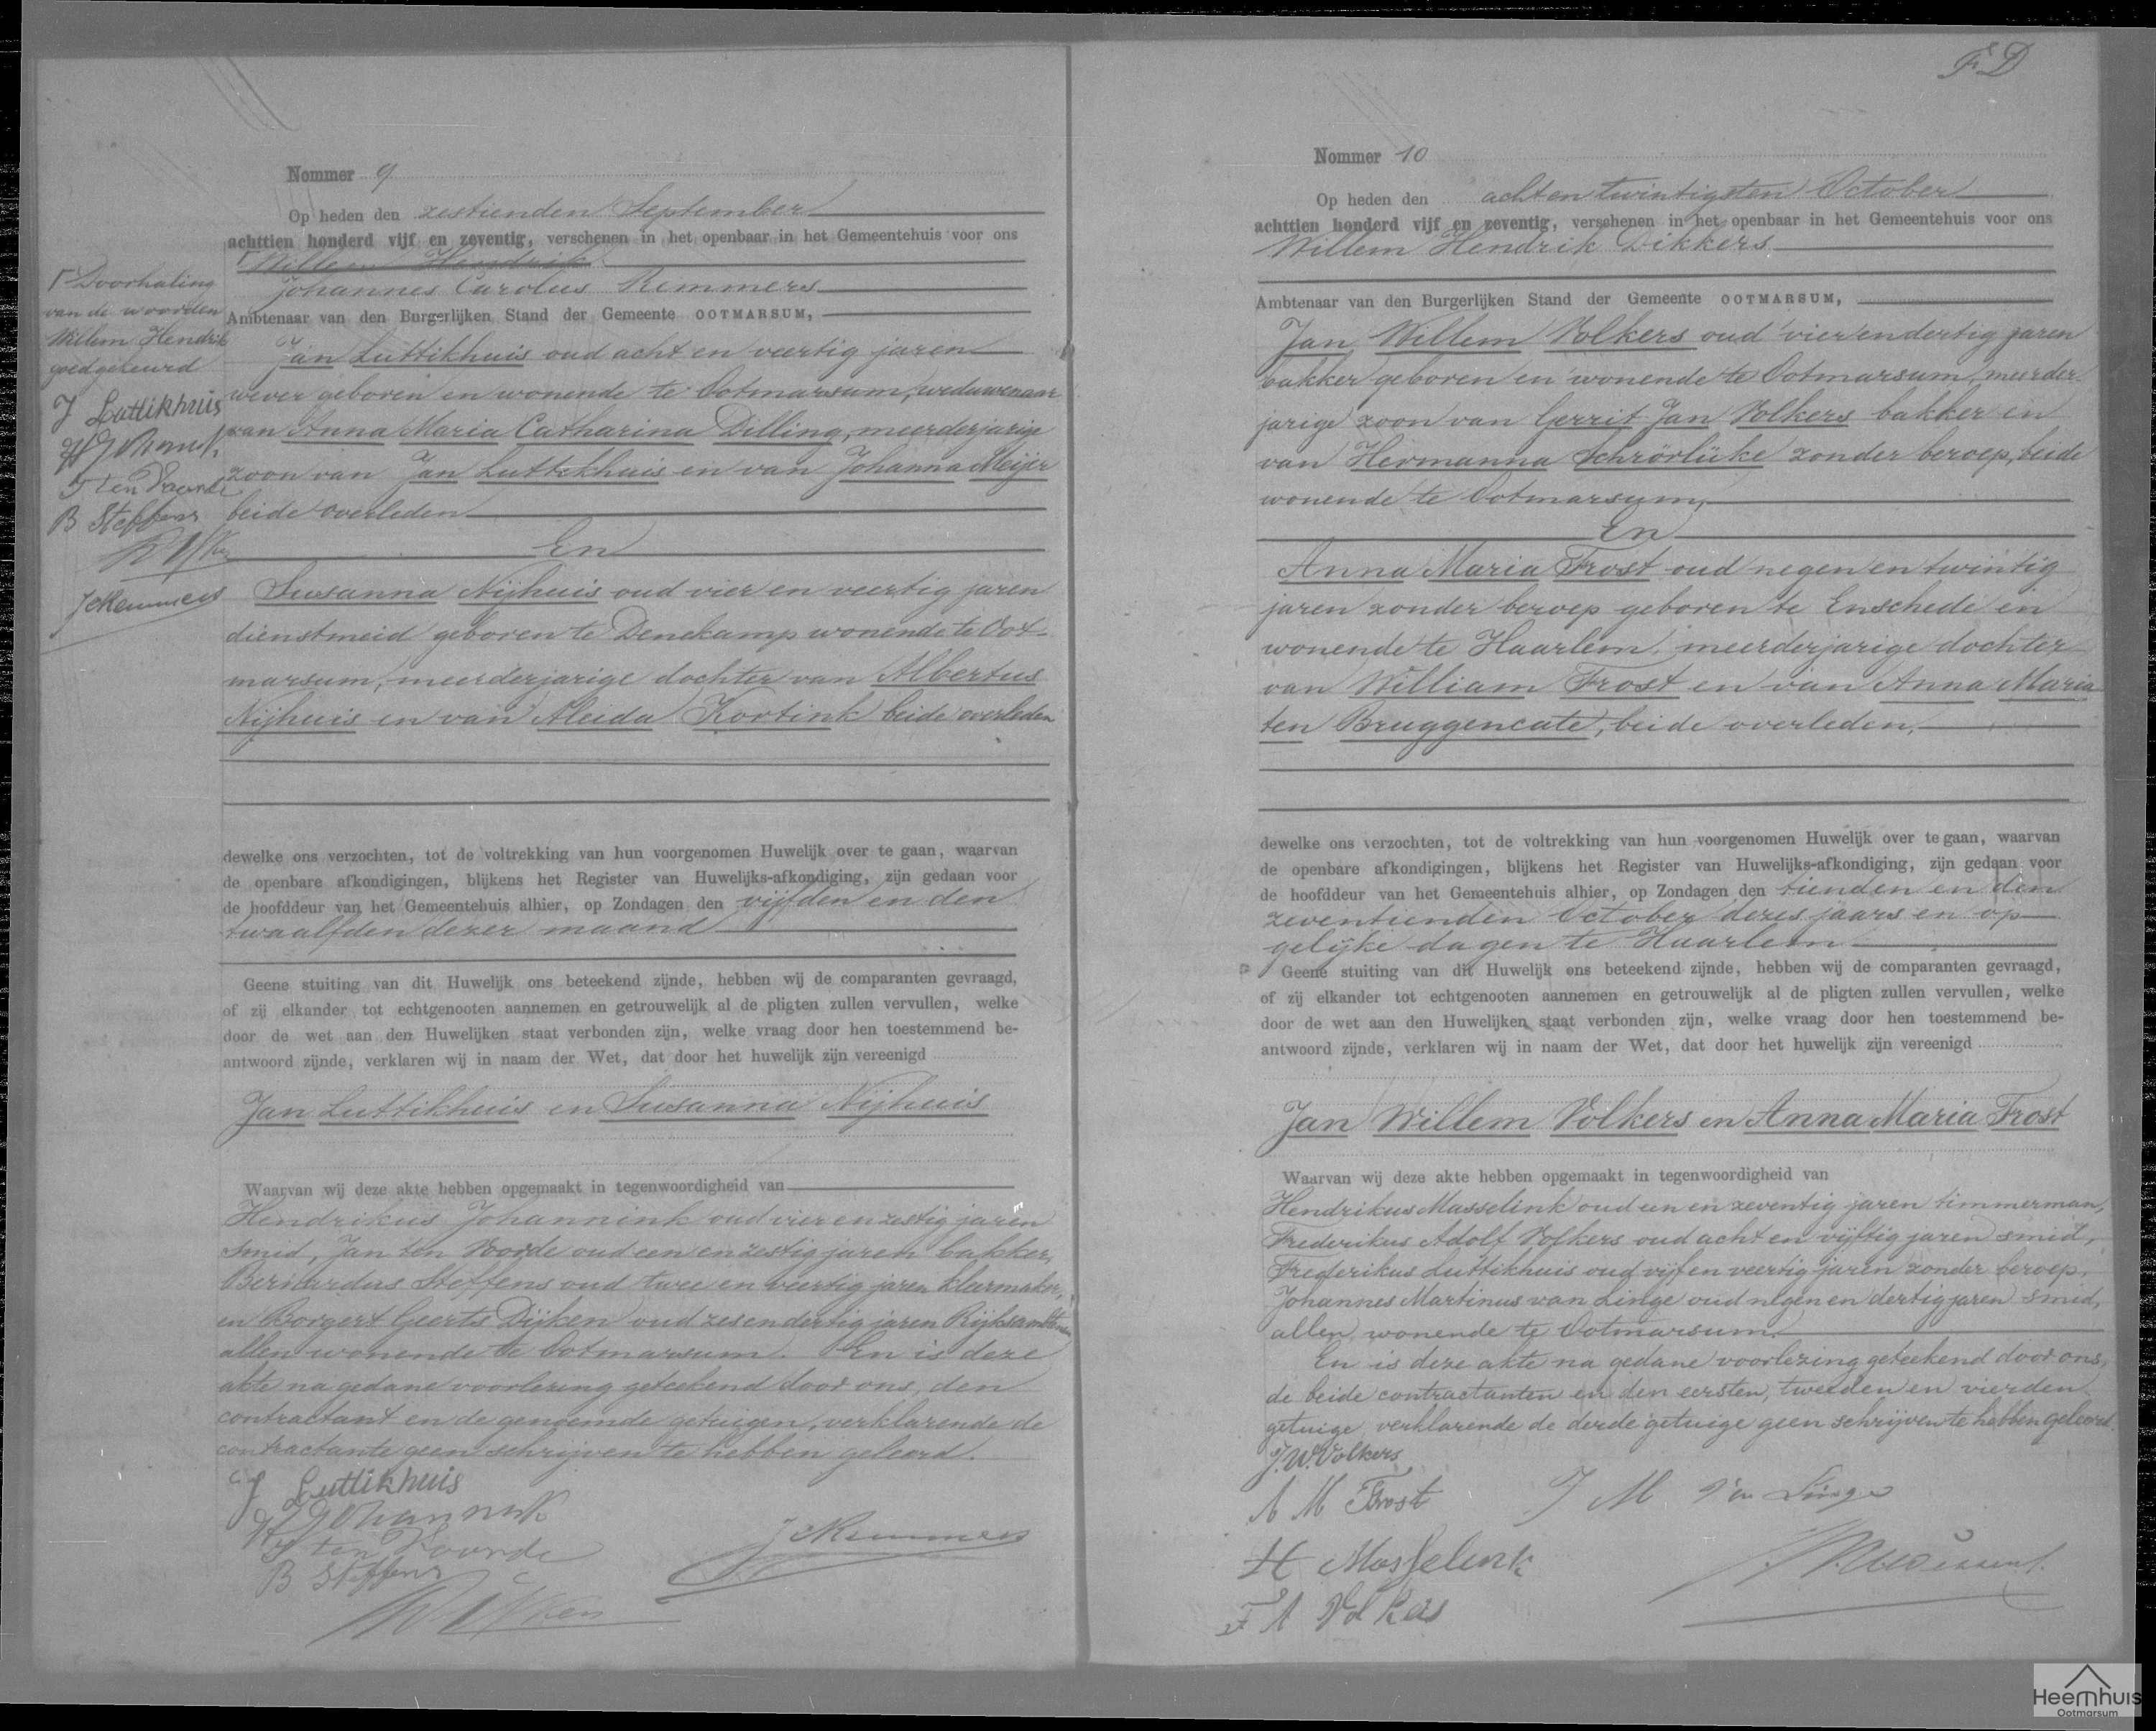 Nommer 9
Op heden den zestienden September
achttien honderd vijf en zeventig, verschenen in het openbaar in het Gemeentehuis voor ons
Willem Hendrik
Johannes Carolus Remmers
Ambtenaar van den Burgerlijken Stand der Gemeente OOTMARSUM,
Jan Luttikhuis oud acht en veertig jaren
wever geboren en wonende te Ootmarsum, weduwenaar
van Anna Maria Catharina Dilling, meerderjarige
zoon van Jan Luttikhuis en van Johanna Meijer
beide overleden
En
Susanna Nijhuis oud vier en veertig jaren
dienstmeid geboren te Denekamp wonende te Oot-
marsum, meerderjarige dochter van Albertus
Nijhuis en van Aleida Kortink beide overleden
dewelke ons verzochten, tot de voltrekking van hun voorgenomen Huwelijk over te gaan, waarvan
de openbare afkondigingen, blijkens het Register van Huwelijks-afkondiging, zijn gedaan voor
de hoofddeur van het Gemeentehuis alhier, op Zondagen den vijfden en den
twaalfden dezer maand
Geene stuiting van dit Huwelijk ons beteekend zijnde, hebben wij de comparanten gevraagd,
of zij elkander tot echtgenooten aannemen en getrouwelijk al de pligten zullen vervullen, welke
door de wet aan den Huwelijken staat verbonden zijn, welke vraag door hen toestemmend be-
antwoord zijnde, verklaren wij in naam der Wet, dat door het huwelijk zijn vereenigd
Jan Luttikhuis en Susanna Nijhuis
Waarvan wij deze akte hebben opgemaakt in tegenwoordigheid van
Hendrikus Johannink oud vier en zestig jaren
smid, Jan ten Voorde oud een en zestig jaren bakker,
Bernardus Steffens oud twee en veertig jaren kleermaker,
en Borgert Geerts Dijken oud zes en dertig jaren Rijksambtenaar
allen wonende te Ootmarsum. En is deze
akte na gedane voorlezing geteekend door ons, den
contractant en de genoemde getuigen, verklarende de
contractante geen schrijven te hebben geleerd.
J Luttikhuis
H Johannink
J ten Voorde
B Steffens
JCRemmers
Doorhaling
van de woorden
Willem Hendrik
goedgekeurd
J Luttikhuis
J ten Voorde
B Steffens
JCRemmers
FD
Nommer 10
Op heden den acht en twintigsten October
achttien honderd vijf en zeventig, verschenen in het openbaar in het Gemeentehuis voor ons
Willem Hendrik Dikkers
Ambtenaar van den Burgerlijken Stand der Gemeente OOTMARSUM,
Jan Willem Volkers oud vier en dertig jaren
bakker geboren en wonende te Ootmarsum, meerder-
jarige zoon van Gerrit Jan Volkers bakker en
van Hermanna Schrörlüke zonder beroep, beide
wonende te Ootmarsum,
En
Anna Maria Frost oud negen en twintig
jaren zonder beroep geboren te Enschede en
wonende te Haarlem, meerderjarige dochter
van William Frost en van Anna Maria
ten Bruggencate, beide overleden,
dewelke ons verzochten, tot de voltrekking van hun voorgenomen Huwelijk over te gaan, waarvan
de openbare afkondigingen, blijkens het Register van Huwelijks-afkondiging, zijn gedaan voor
de hoofddeur van het Gemeentehuis alhier, op Zondagen den tienden en den
zeventienden October dezes jaars en op
gelijke dagen te Haarlem
Geene stuiting van dit Huwelijk ons beteekend zijnde, hebben wij de comparanten gevraagd,
of zij elkander tot echtgenooten aannemen en getrouwelijk al de pligten zullen vervullen, welke
door de wet aan den Huwelijken staat verbonden zijn, welke vraag door hen toestemmend be-
antwoord zijnde, verklaren wij in naam der Wet, dat door het huwelijk zijn vereenigd
Jan Willem Volkers en Anna Maria Frost
Waarvan wij deze akte hebben opgemaakt in tegenwoordigheid van
Hendrikus Masselink oud een en zeventig jaren timmerman,
Frederikus Adolf Volkers oud acht en vijftig jaren smid,
Frederikus Luttikhuis oud vijf en veertig jaren zonder beroep,
Johannes Martinus van Linge oud negen en dertig jaren smid,
allen wonende te Ootmarsum.
En is deze akte na gedane voorlezing geteekend door ons,
de beide contractanten en den eersten, tweeden en vierden
getuige verklarende de derde getuige geen schrijven te hebben geleerd.
J.W. Volkers
A M Frost
J M van Linge
H Masselink
F A Volkers
Heemhuis
Ootmarsum